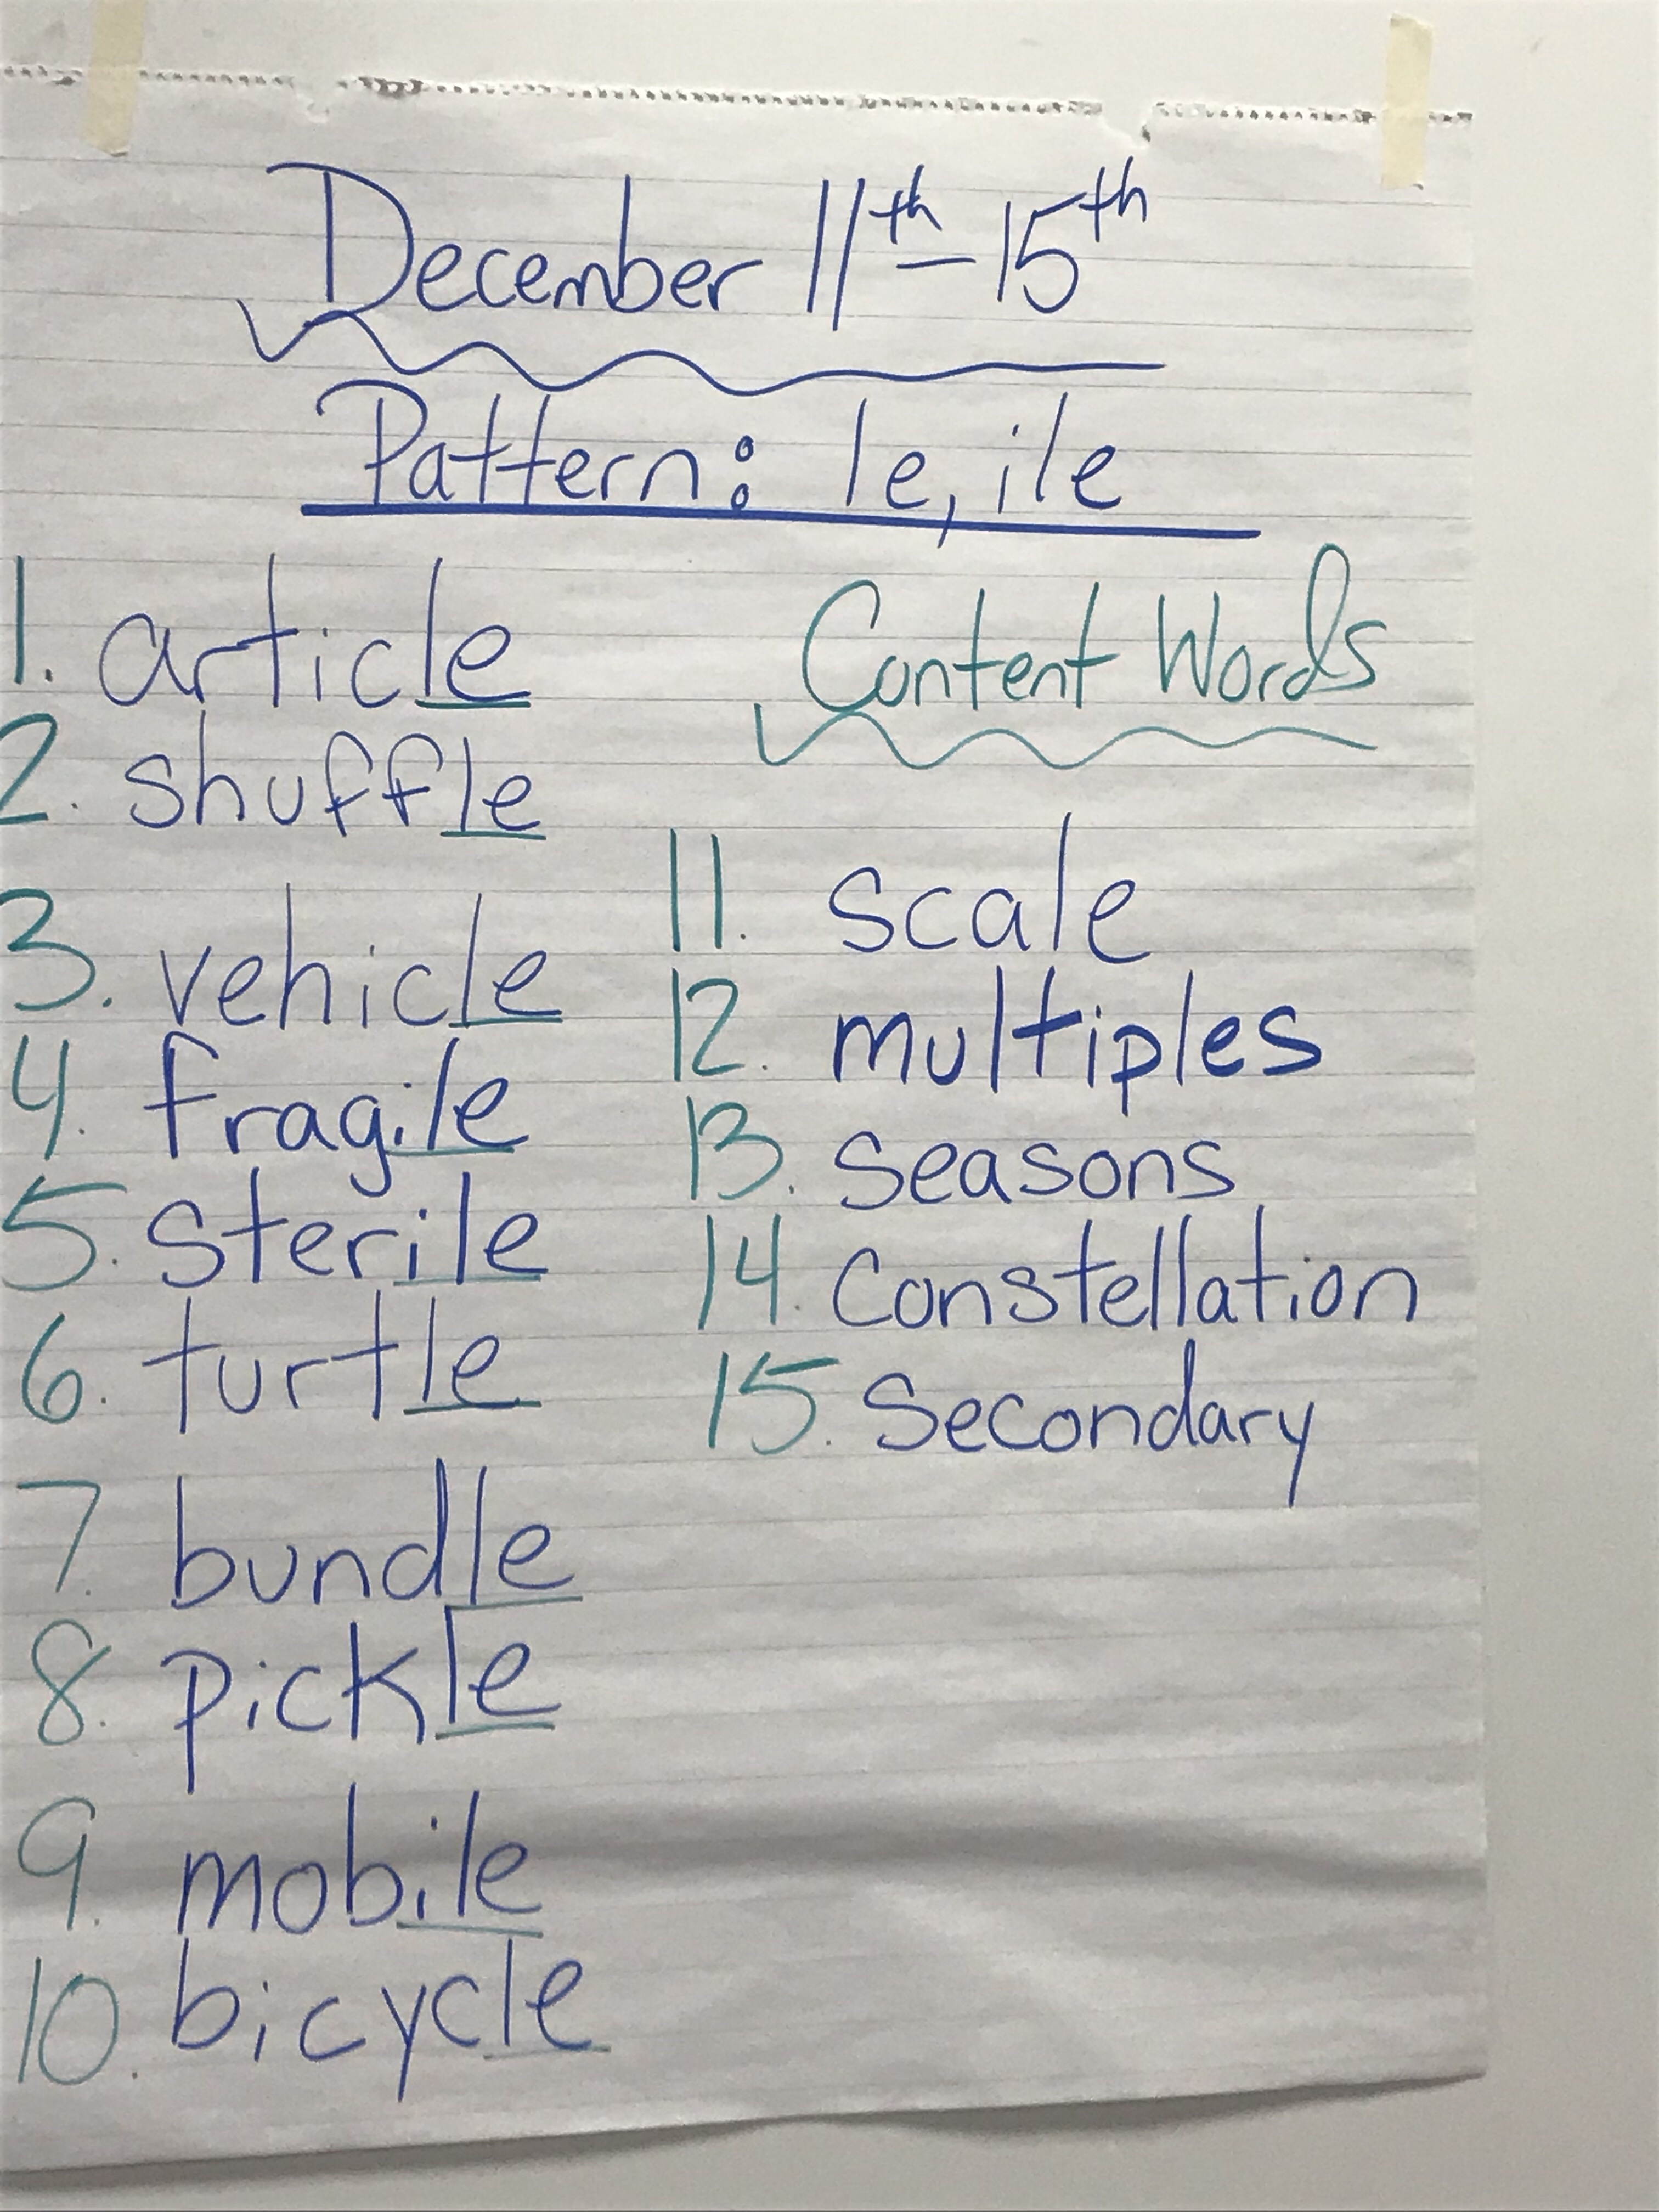 December 11th - 15th
Pattern: le, ile
1. article
2. shuffle
3. vehicle
4. fragile
5. sterile
6. turtle
7. bundle
8. pickle
9. mobile
10. bicycle
Content Words
11. scale
12. multiples
13. seasons
14. Constellation
15. Secondary